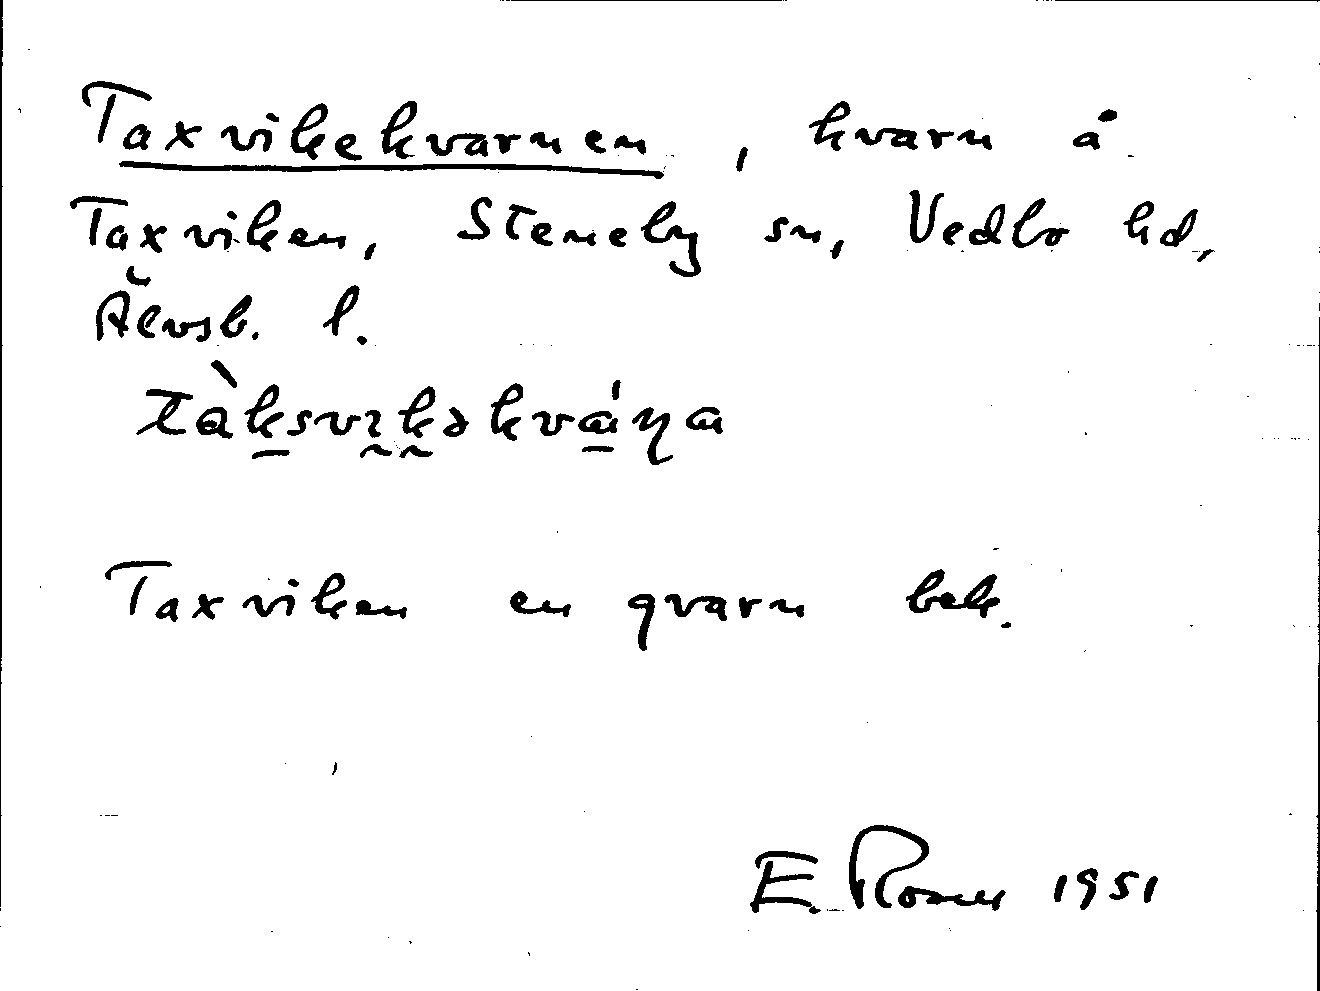 Taxvikekvarnen, kvarn å
Taxviken, Steneby sn, Vedbo hd,
Älvsb. l.
tàksvikəkváɳa
Taxviken en qvarn bek.
E. Rosell 1951